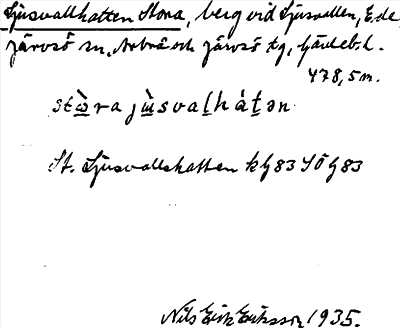 Ljusvallhatten Stora, berg vid Ljusvallen, E. de
Järvsö sn, Arbrå och Järvsö tg, Gävleb. l.
478,5 m.
stɷ̀ra jùsvalhátən
St. Ljusvallshatten k G83 SÖ G83
Nils Erik Eriksson 1935.